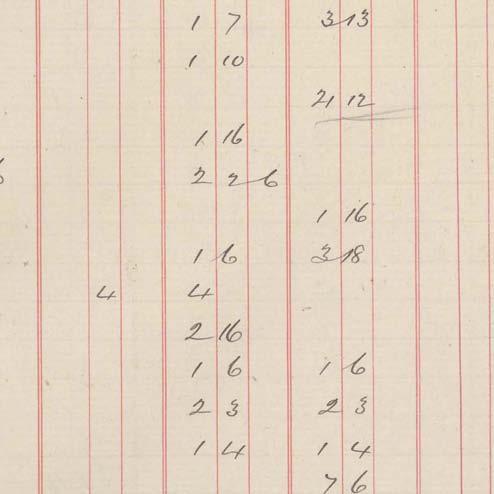 1 7 3 13
1 10
21 12
1 16
2 2 6
1 16
1 6 3 18
4 4
2 16
1 6 1 6
2 3 2 3
1 4 1 4
7 6